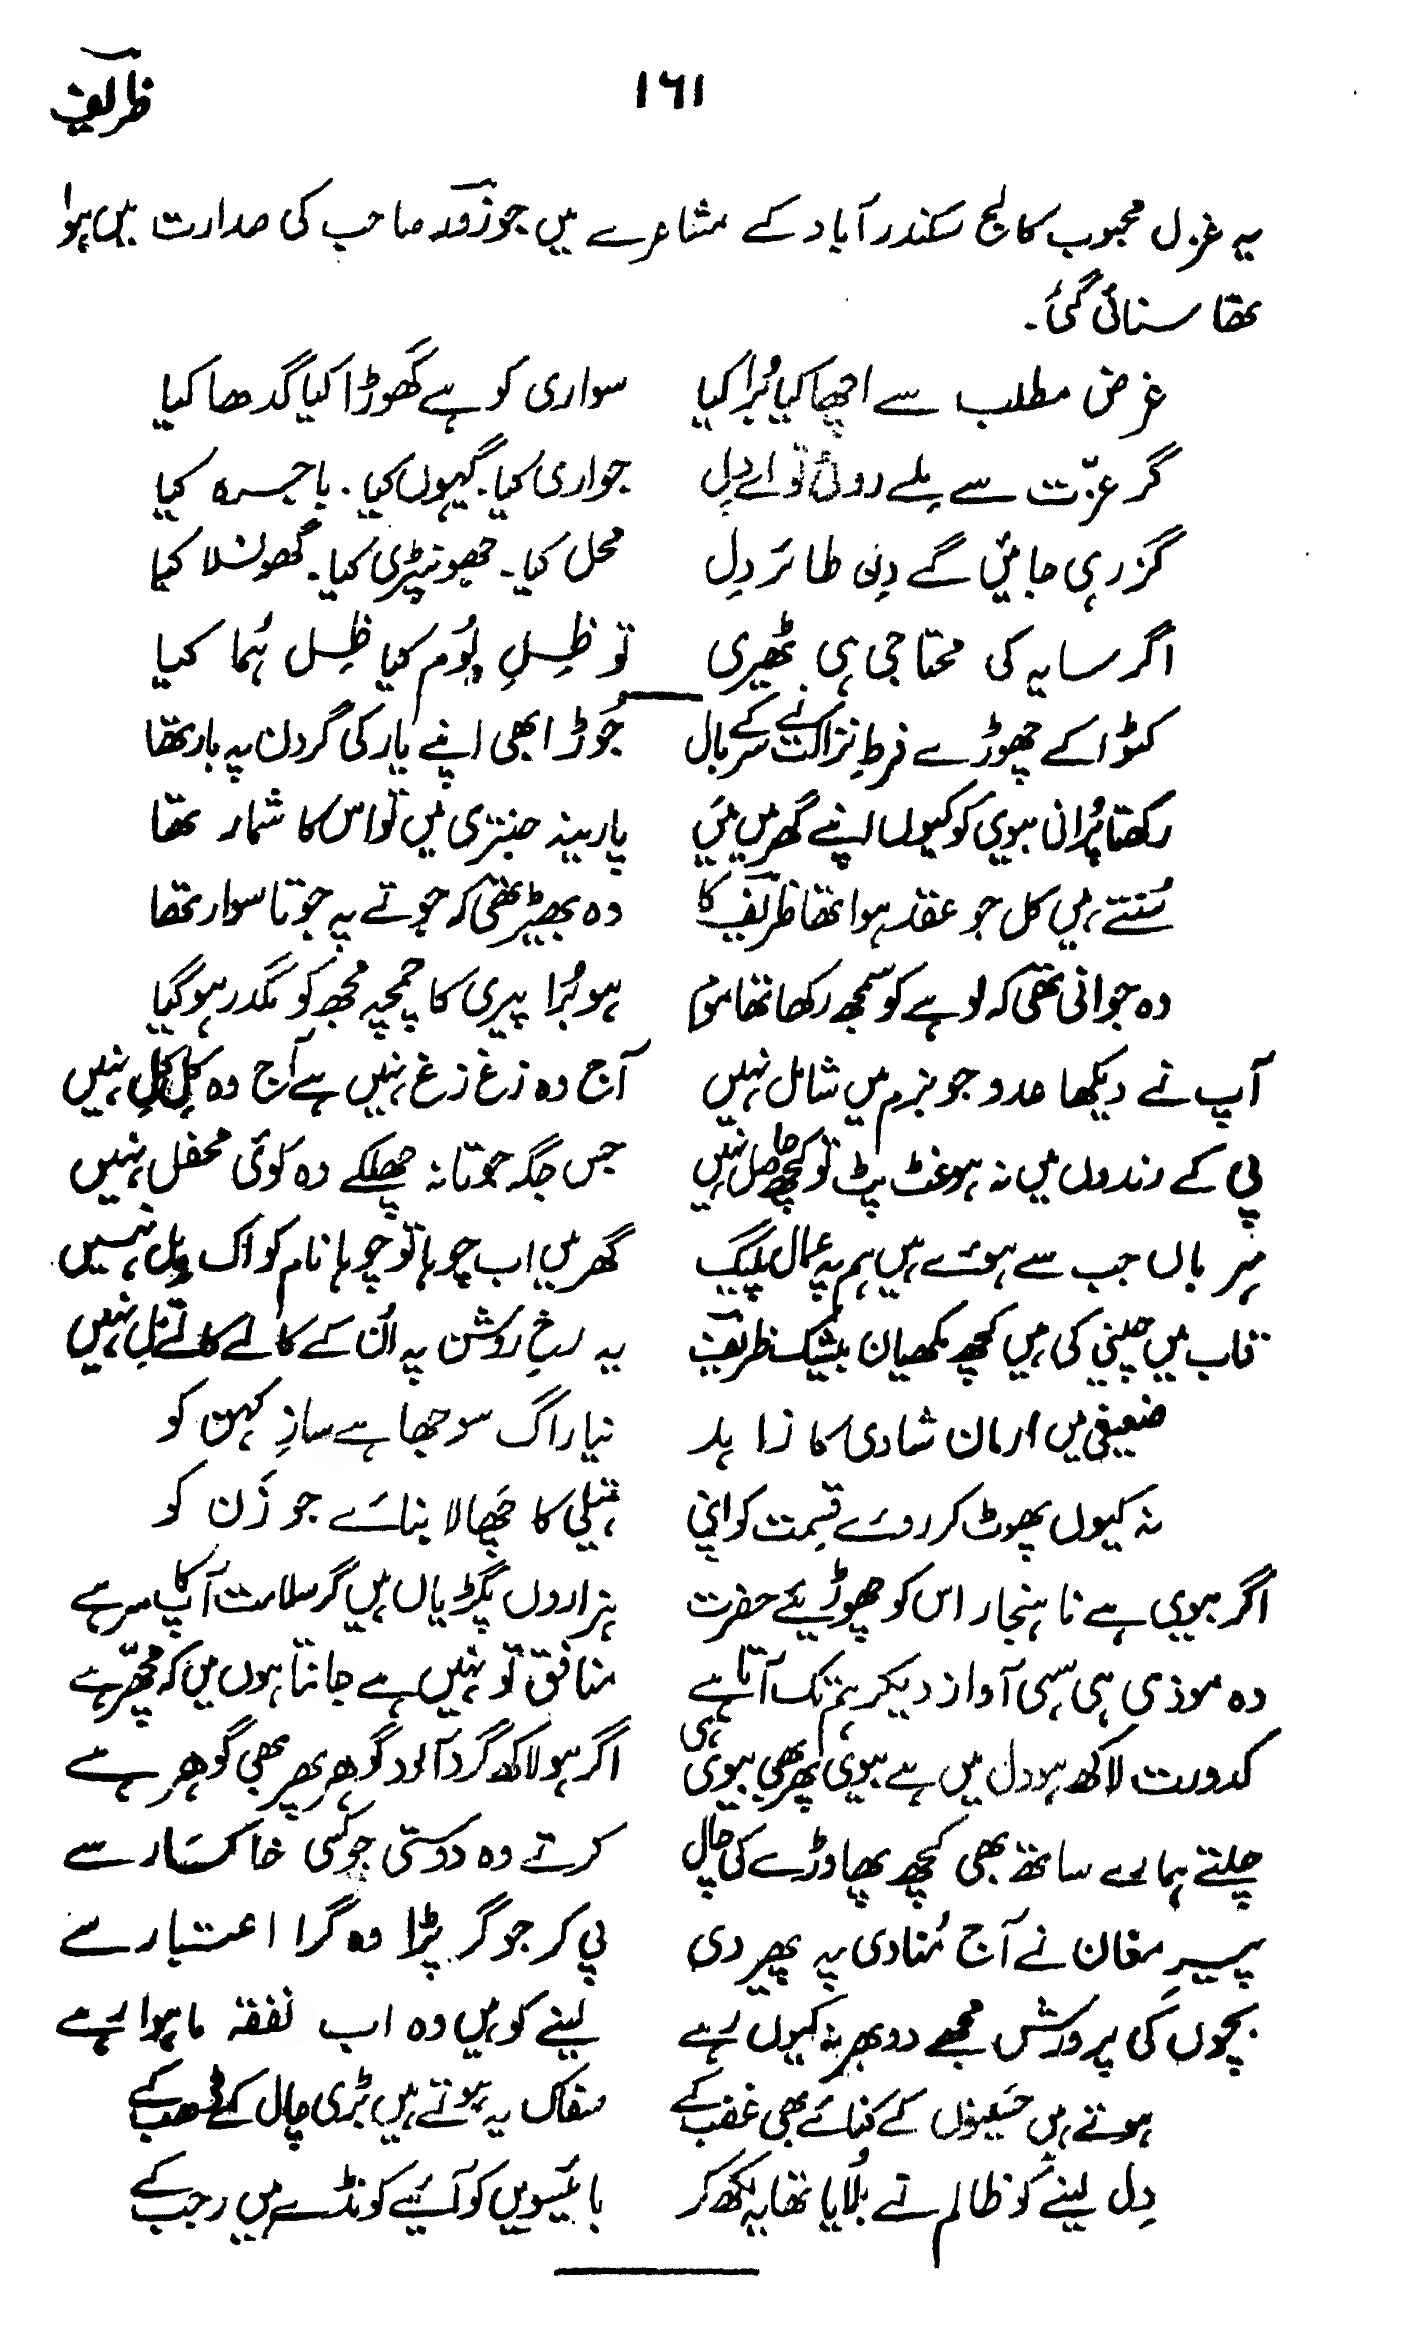 ظریف
۱۶۱
یہ غزل محبوب کالج سکندرآباد کے مشاعرے میں جو زور صاحب کی صدارت میں ہوا
تھا سنائی گئی۔
غرض مطلب سے اچھا کیا بُرا کیا سواری کو ہے گھوڑا کیا گدھا کیا
گر عزّت سے ملے روٹی تو اے دِل جواری کیا۔ گیہوں کیا۔ باجرہ کیا
گزر ہی جائیں گے دِن طائر دِل محل کیا۔ جھونپڑی کیا۔ گھونسلا کیا
اگر سایہ کی محتاجی ہی ٹھیری تو ظِلِ بُوم کیا ظِل ہُما کیا
کٹوا کے چھوڑے فرطِ نزاکت نے سر کے بال جُوڑا بھی اپنے یار کی گردن پہ بار تھا
رکھتا پُرانی بیوی کو کیوں اپنے گھر میں مَیں پارینہ جنتری میں تو اس کا شمار تھا
سُنتے ہیں کل جو عقد ہوا تھا ظریف کا وہ بھیڑ تھی کہ جوتے پہ جوتا سوار تھا
وہ جوانی تھی کہ لوہے کو سمجھ رکھا تھا موم ہو بُرا پیری کا چمچہ مجھ کو مگدر ہو گیا
آپ نے دیکھا عدو جو بزم میں شامل نہیں آج وہ زغ زغ نہیں ہے آج وہ کِل کِل نہیں
پی کے رندوں میں نہ ہو غٹ پٹ تو کچھ حاصل نہیں جس جگہ جوتا نہ چھلکے وہ کوئی محفل نہیں
مہرباں جب سے ہوئے ہیں ہم پہ عمال پلیگ گھر میں اب چوہا تو چوہا نام کو اک بِل نہیں
قاب میں چینی کی ہیں کچھ مکھیاں بیشک ظریف یہ رخِ روشن پہ اُن کے کالے کالے تِل نہیں
ضعیفی میں ارمان شادی کا زاہد نیا راگ سوجھا ہے سازِ کہن کو
نہ کیوں پھوٹ کر روئے قسِمت کو اپنی ہتیلی کا چھالا بنائے جو زَن کو
اگر بیوی ہے ناہنجار اس کو چھوڑیئے حضرت ہزاروں پگڑیاں ہیں گر سلامت آپ کا سر ہے
وہ موذی ہی سہی آواز دیکر ہم تک آتا ہے منافق تو نہیں ہے جانتا ہوں میں کہ مچھّر ہے
کدورت لاکھ ہو دل میں ہے بیوی پھر بھی بیوی ہی اگر ہو لاکھ گرد آلود گوہر پھر بھی گوہر ہے
چلتے ہمارے ساتھ بھی کچھ پھاوڑے کی چال کرتے وہ دوستی جو کسی خاکسار سے
پیرِ مغان نے آج مُنادی یہ پھیر دی پی کر جو گر پڑا وہ گرا اعتبار سے
بچوں کی پرورش مجھے دوبھر نہ کیوں رہے لینے کو ہیں وہ اب نفقہ ماہوار ہے
ہوتے ہیں حَسینوں کے کنائے بھی غضب کے سفاک یہ ہوتے ہیں بڑی چال کے ڈھب کے
دِل لینے کو ظالم نے بُلایا تھا یہ لکھ کر بائیسویں کو آئیے کونڈے ہیں رجب کے